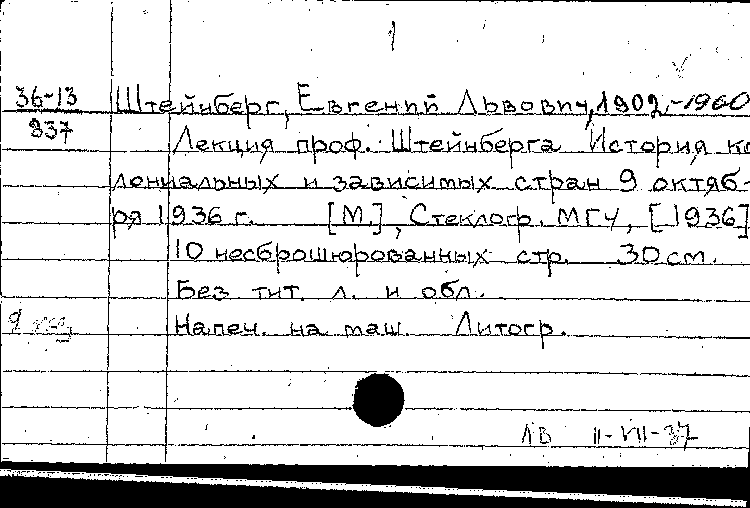 1
36-13 Штейнберг, Евгений Львович, 1902-1960
837 Лекция проф. Штейнберга История ко
лониальных и зависимых стран 9 октяб-
ря 1936 г. [М.], Стеклогр. МГУ, [1936]
10 несброшюрованных стр. 30 см.
Без тит. л. и обл.
Напеч. на маш. Литогр.
ЛВ II-VII-37